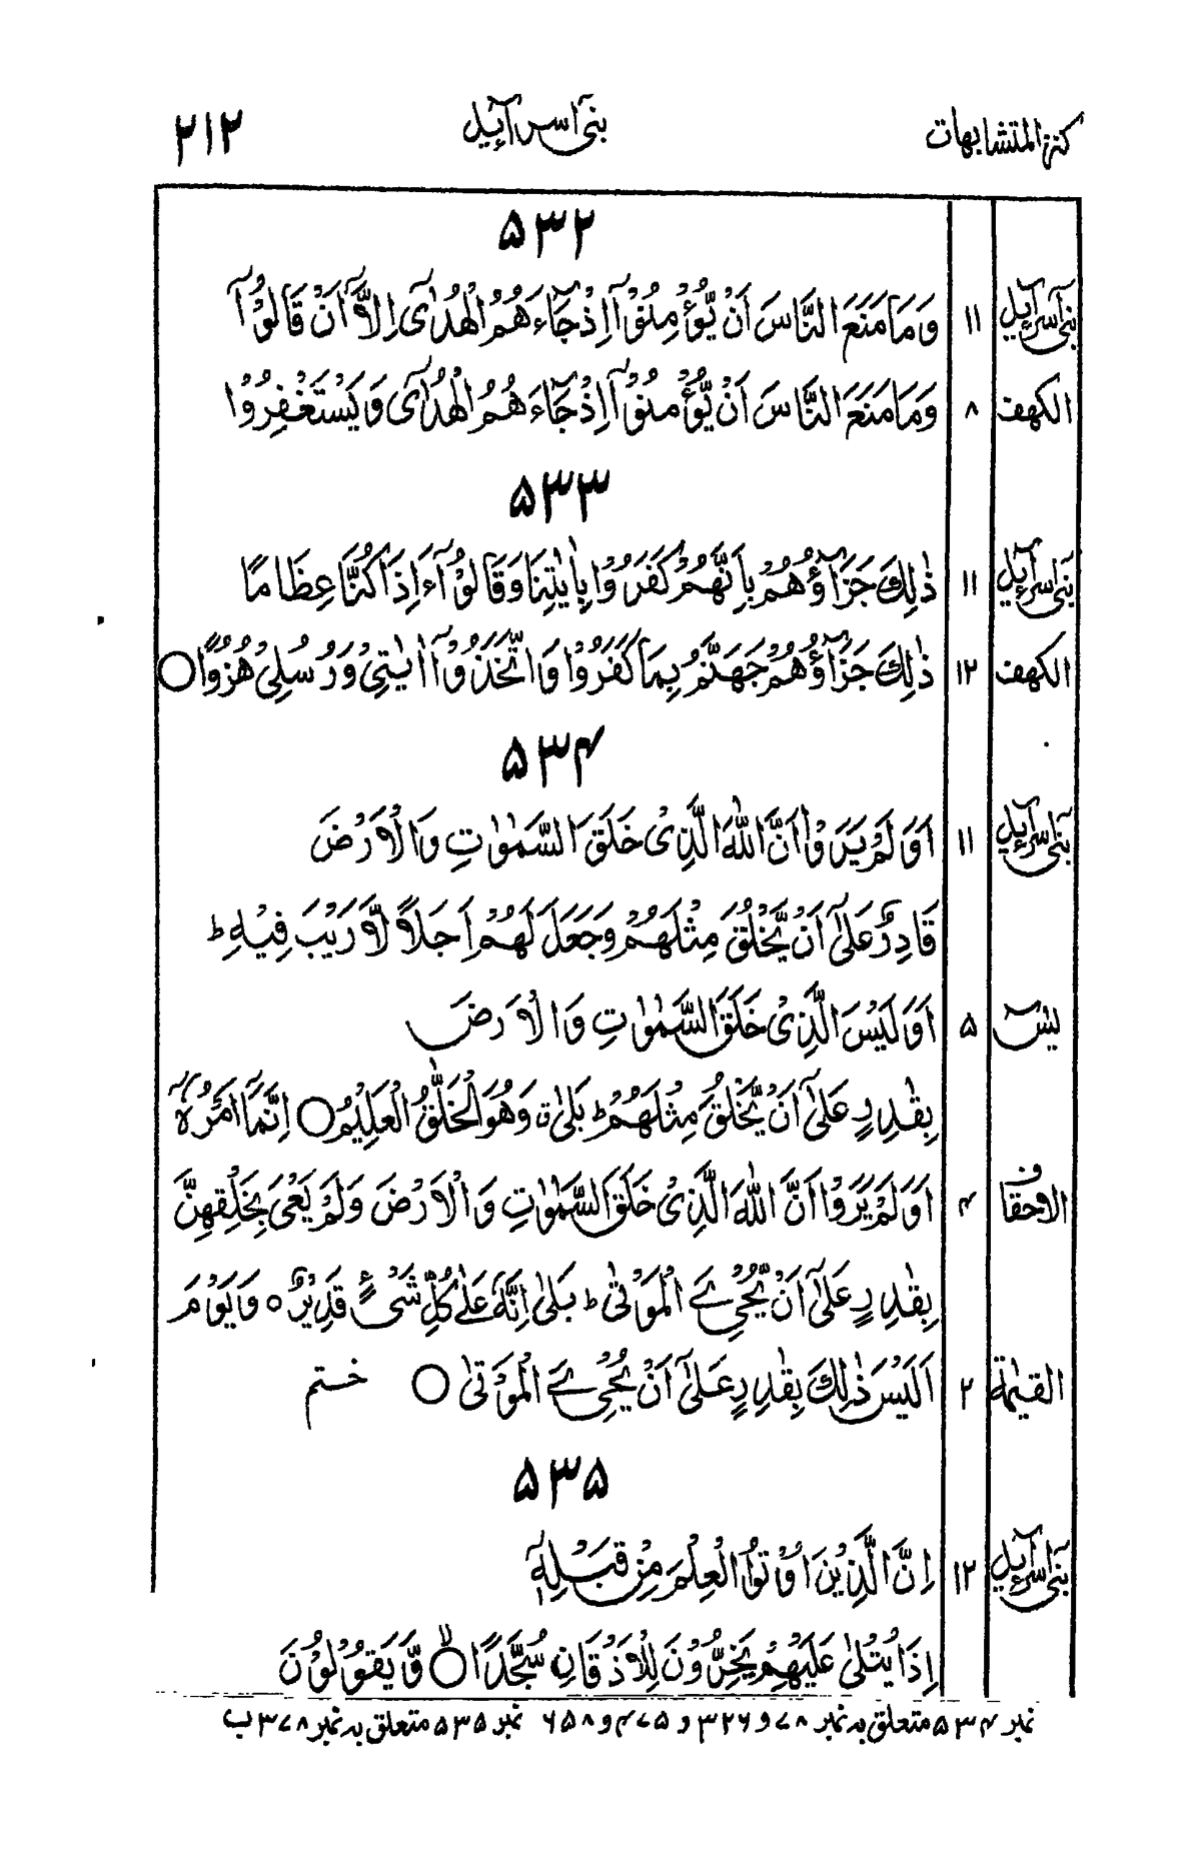 كنز المتشابهات بنی اسرآءیل ۲۱۲
۵۳۲
بنی اسرآءیل ۱۱ وَمَا مَنَعَ النَّاسَ اَنْ یُّؤْمِنُوْۤا اِذْ جَآءَهُمُ الْهُدٰۤی اِلَّاۤ اَنْ قَالُوْۤا
الكهف ۸ وَمَا مَنَعَ النَّاسَ اَنْ یُّؤْمِنُوْۤا اِذْ جَآءَهُمُ الْهُدٰۤی وَیَسْتَغْفِرُوْا
۵۳۳
بنی اسرآءیل ۱۱ ذٰلِكَ جَزَآؤُهُمْ بِاَنَّهُمْ كَفَرُوْا بِاٰیٰتِنَا وَقَالُوْۤا ءَاِذَا كُنَّا عِظَامًا
الكهف ۱۲ ذٰلِكَ جَزَآؤُهُمْ جَهَنَّمُ بِمَا كَفَرُوْا وَاتَّخَذُوْۤا اٰیٰتِیْ وَرُسُلِیْ هُزُوًا ○
۵۳۴
بنی اسرآءیل ۱۱ اَوَلَمْ یَرَوْا اَنَّ اللّٰهَ الَّذِیْ خَلَقَ السَّمٰوٰتِ وَالْاَرْضَ
قَادِرٌ عَلٰۤی اَنْ یَّخْلُقَ مِثْلَهُمْ وَجَعَلَ لَهُمْ اَجَلًا لَّا رَیْبَ فِیْهِ ؕ
یٰسٓ ۵ اَوَلَیْسَ الَّذِیْ خَلَقَ السَّمٰوٰتِ وَالْاَرْضَ
بِقٰدِرٍ عَلٰۤی اَنْ یَّخْلُقَ مِثْلَهُمْ ؕ بَلٰی ق وَهُوَ الْخَلّٰقُ الْعَلِیْمُ ○ اِنَّمَاۤ اَمْرُهٗۤ
الاحقاف ۴ اَوَلَمْ یَرَوْا اَنَّ اللّٰهَ الَّذِیْ خَلَقَ السَّمٰوٰتِ وَالْاَرْضَ وَلَمْ یَعْیَ بِخَلْقِهِنَّ
بِقٰدِرٍ عَلٰۤی اَنْ یُّحْیِۦَ الْمَوْتٰی ؕ بَلٰی اِنَّهٗ عَلٰی كُلِّ شَیْءٍ قَدِیْرٌ ○ وَیَوْمَ
القیٰمة ۲ اَلَیْسَ ذٰلِكَ بِقٰدِرٍ عَلٰۤی اَنْ یُّحْیِۦَ الْمَوْتٰی ○ ختم
۵۳۵
بنی اسرآءیل ۱۲ اِنَّ الَّذِیْنَ اُوْتُوا الْعِلْمَ مِنْ قَبْلِهٖۤ
اِذَا یُتْلٰی عَلَیْهِمْ یَخِرُّوْنَ لِلْاَذْقَانِ سُجَّدًا ○ۙ وَّیَقُوْلُوْنَ
نمبر ۵۳۴ متعلق بہ نمبر ۷۸ و ۳۲۶ و ۴۷۵ و ۶۵۸ نمبر ۵۳۵ متعلق بہ نمبر ۳۷۸ ب